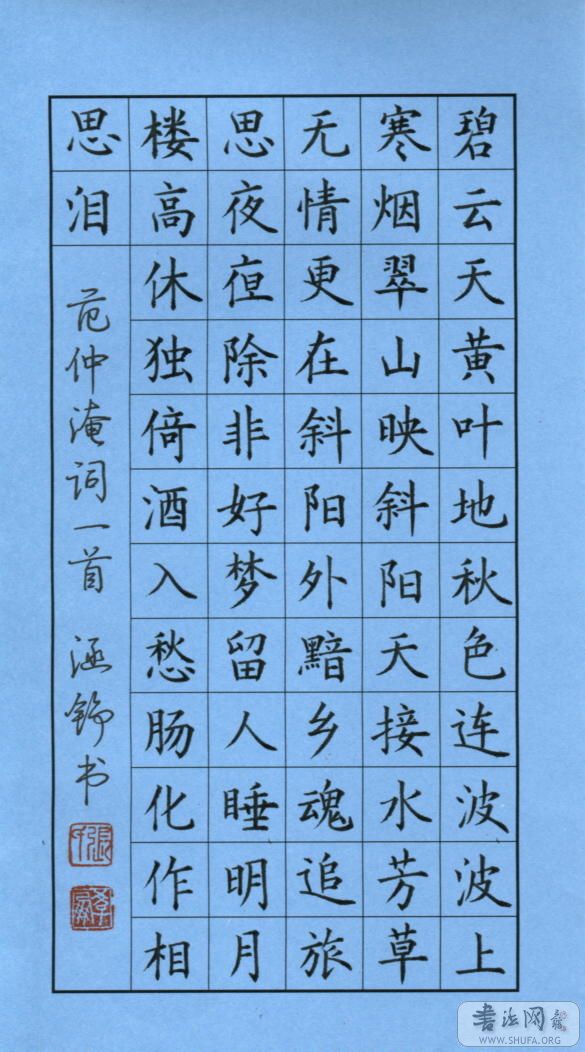 碧云天黄叶地秋色连波波上
寒烟翠山映斜阳天接水芳草
无情更在斜阳外黯乡魂追旅
思夜亱除非好梦留人睡明月
楼高休独倚酒入愁肠化作相
思泪
范仲淹词一首 涵 书
書法网
WWW.SHUFA.ORG